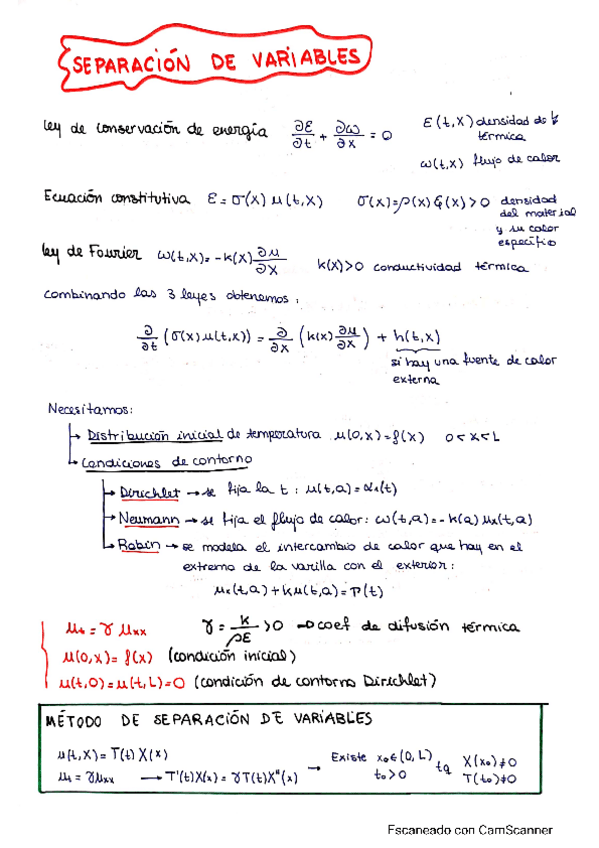 SEPARACIÓN DE VARIABLES
Ley de conservación de energía ∂ε/∂t + ∂ω/∂x = 0 ε(t,x) densidad de E térmica
ω(t,x) flujo de calor
Ecuación constitutiva ε = σ(x) u(t,x) σ(x)=ρ(x)ζ(x)>0 densidad
del material
y su calor
específico
Ley de Fourier ω(t,x)=-k(x) ∂u/∂x k(x)>0 conductividad térmica
Combinando las 3 leyes obtenemos:
∂/∂t (σ(x)u(t,x)) = ∂/∂x (k(x) ∂u/∂x) + h(t,x)
si hay una fuente de calor
externa
Necesitamos:
Distribución inicial de temperatura u(0,x)=f(x) 0<x<L
Condiciones de contorno
Dirichlet → se fija la t: u(t,a)=α₁(t)
Neumann → se fija el flujo de calor: ω(t,a)=-k(a) uₓ(t,a)
Robin → se modela el intercambio de calor que hay en el
extremo de la varilla con el exterior:
uₓ(t,a)+ku(t,a)=P(t)
uₜ = γ uₓₓ γ = k/ρε >0 → coef de difusión térmica
u(0,x)= f(x) (condición inicial)
u(t,0)=u(t,L)=0 (condición de contorno Dirichlet)
MÉTODO DE SEPARACIÓN DE VARIABLES
u(t,x)= T(t) X(x)
uₜ = γuₓₓ → T'(t)X(x) = γT(t)X''(x) → Existe x₀∈(0,L) t₀>0 tq X(x₀)≠0 T(t₀)≠0
Escaneado con CamScanner